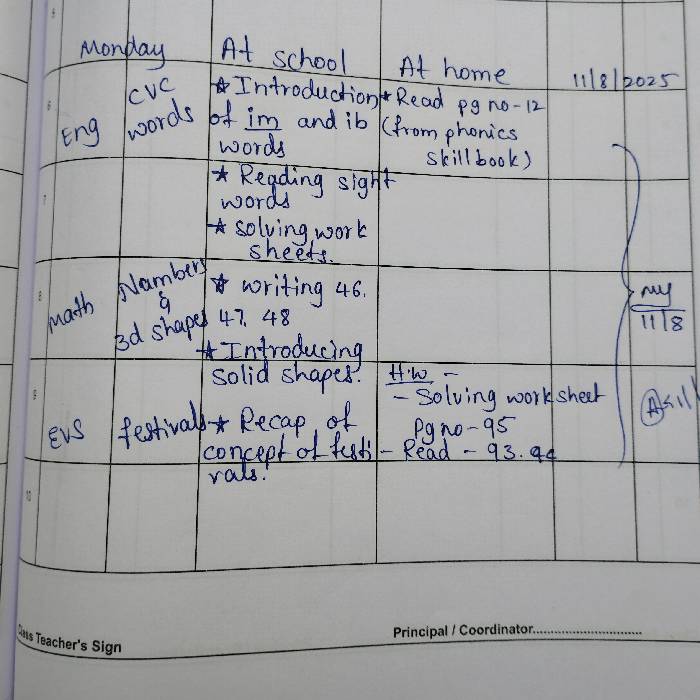 5
Monday At school At home 11/8/2025
6 Eng CVC words ★ Introduction of im and ib words ★ Read pg no-12 (from phonics skillbook)
7 ★ Reading sight words
★ solving work sheets.
8 Math Numbers & 3d shapes ★ writing 46. 47. 48
★ Introducing solid shapes.
11/8
9 EVS festivals ★ Recap of concept of festi vals.
H.W -
- Solving worksheet Pg no-95
- Read - 93.94
10
Class Teacher's Sign Principal / Coordinator..............................